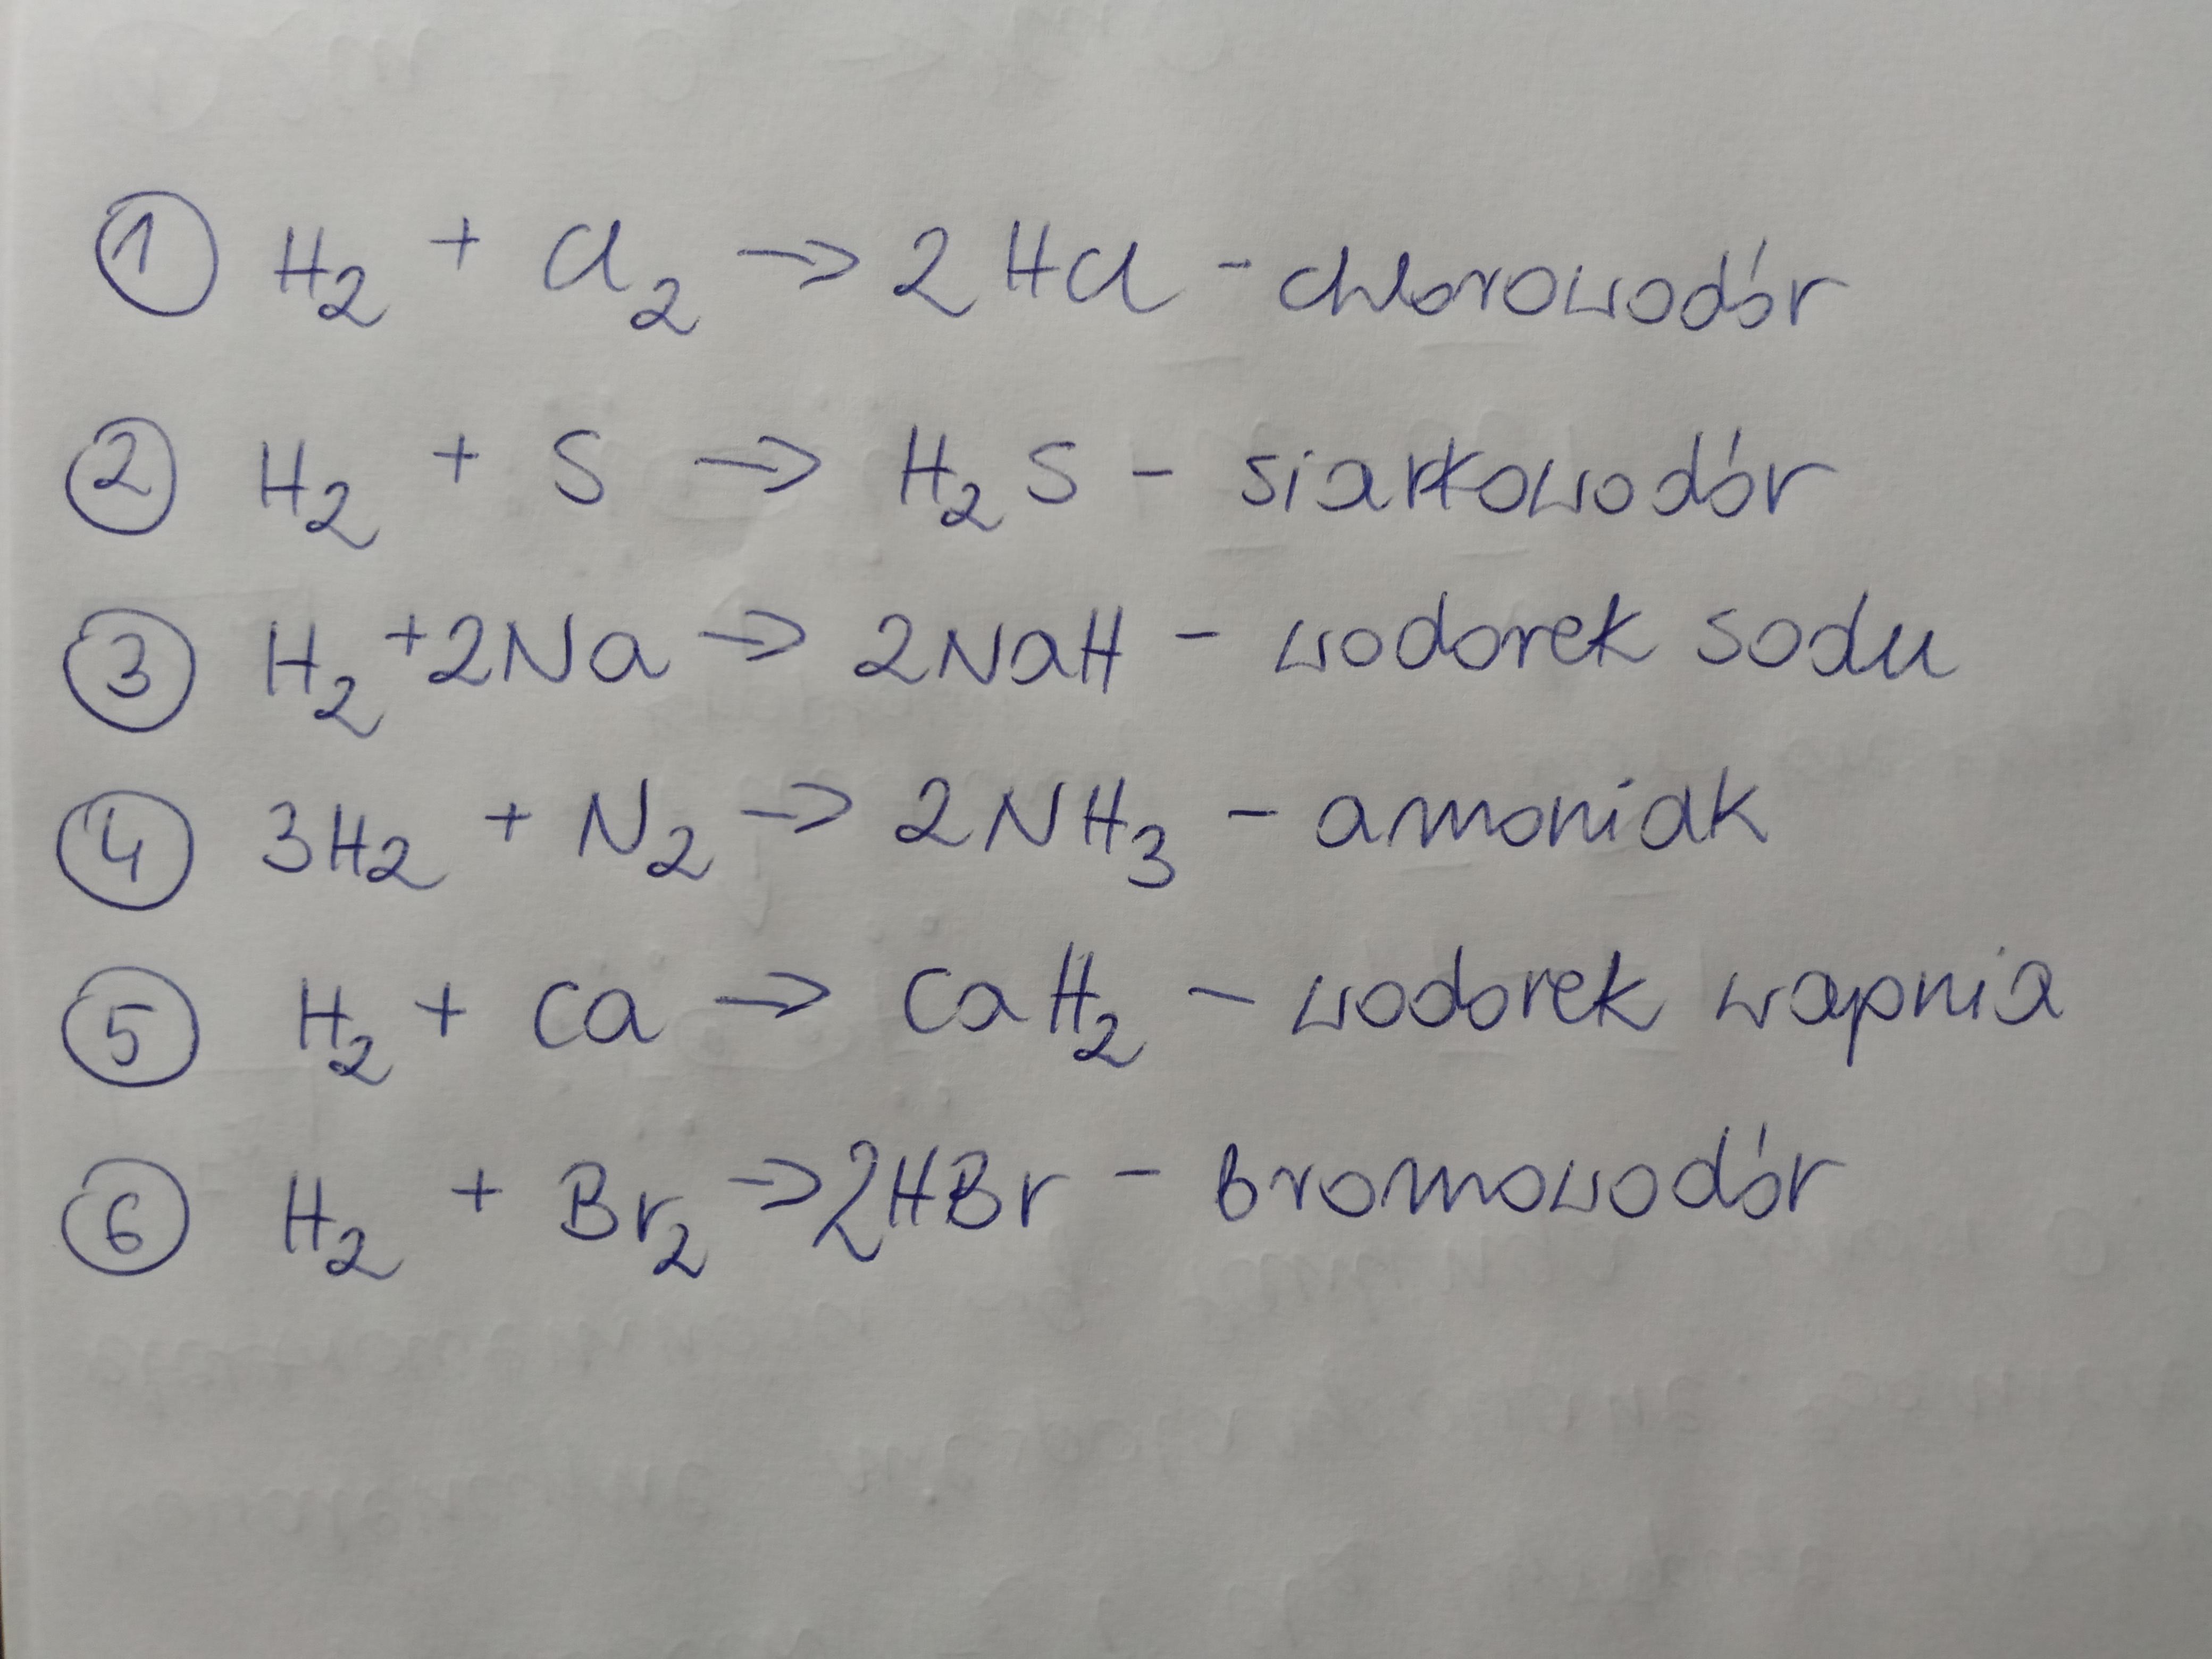 ① H₂ + Cl₂ → 2HCl - chlorowodór
② H₂ + S → H₂S - siarkowodór
③ H₂ + 2Na → 2NaH - wodorek sodu
④ 3H₂ + N₂ → 2NH₃ - amoniak
⑤ H₂ + Ca → CaH₂ - wodorek wapnia
⑥ H₂ + Br₂ → 2HBr - bromowodór